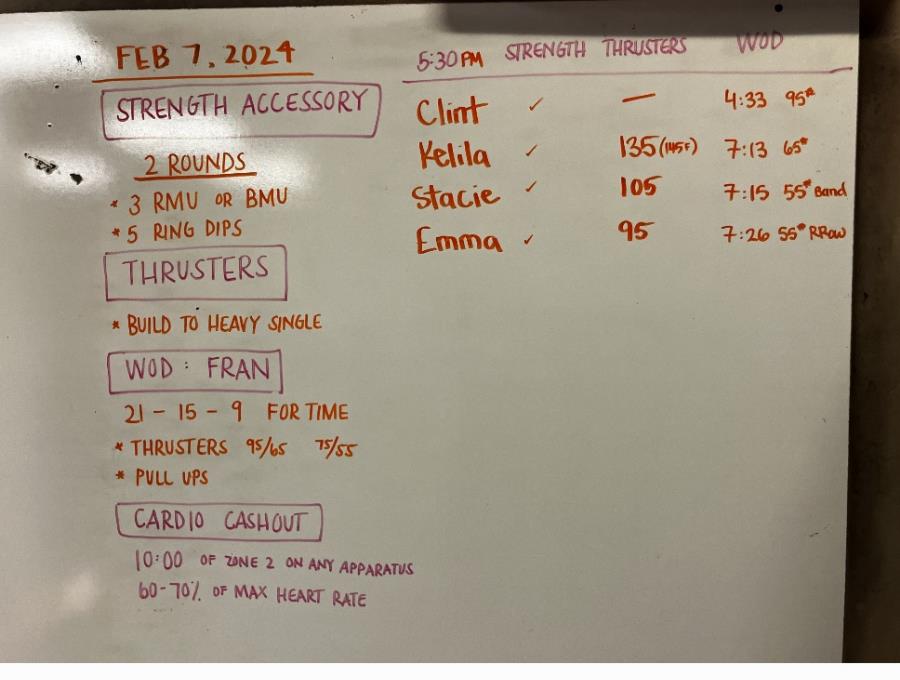 FEB 7, 2024
STRENGTH ACCESSORY
2 ROUNDS
* 3 RMU OR BMU
* 5 RING DIPS
THRUSTERS
* BUILD TO HEAVY SINGLE
WOD : FRAN
21 - 15 - 9 FOR TIME
* THRUSTERS 95/65 75/55
* PULL UPS
CARDIO CASHOUT
10:00 OF ZONE 2 ON ANY APPARATUS
60-70% OF MAX HEART RATE
5:30PM STRENGTH THRUSTERS WOD
Clint ✓ — 4:33 95#
Kelila ✓ 135 (145F) 7:13 65#
Stacie ✓ 105 7:15 55# Band
Emma ✓ 95 7:26 55# RRow